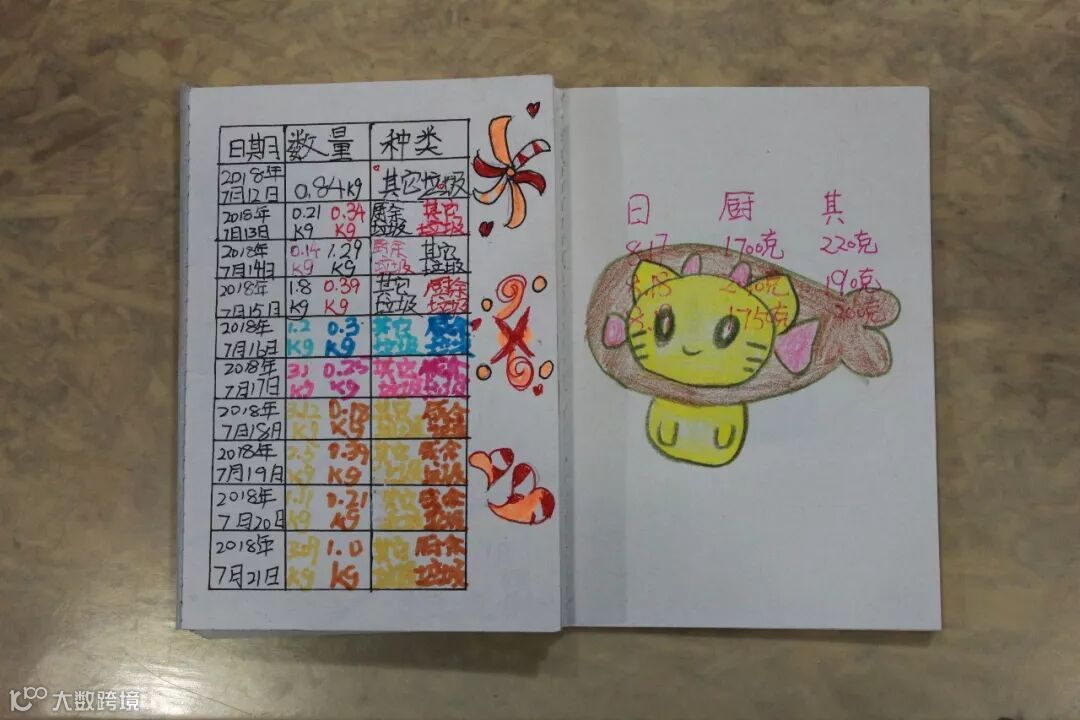 日期 数量 种类
2018年
7月12日 0.84K9 其它垃圾
2018年 0.21 0.34 厨余 其它
7月13日 K9 K9 垃圾 垃圾
2018年 0.14 1.29 厨余 其它
7月14日 K9 K9 垃圾 垃圾
2018年 1.8 0.39 其它 厨余
7月15日 K9 K9 垃圾 垃圾
2018年 1.2 0.3 其它 厨余
7月16日 K9 K9 垃圾 垃圾
2018年 0.25 其它 厨余
7月17日 K9 K9 垃圾 垃圾
2018年 其它 厨余
7月18日 K9 K9 垃圾 垃圾
2018年 0.39 其它 厨余
7月19日 K9 K9 垃圾 垃圾
2018年 0.21 其它 厨余
7月20日 K9 K9 垃圾 垃圾
2018年 1.0 其它 厨余
7月21日 K9 K9 垃圾 垃圾
日 厨 其
8.17 1700克 220克
8.18 190克
1750克
大数跨境